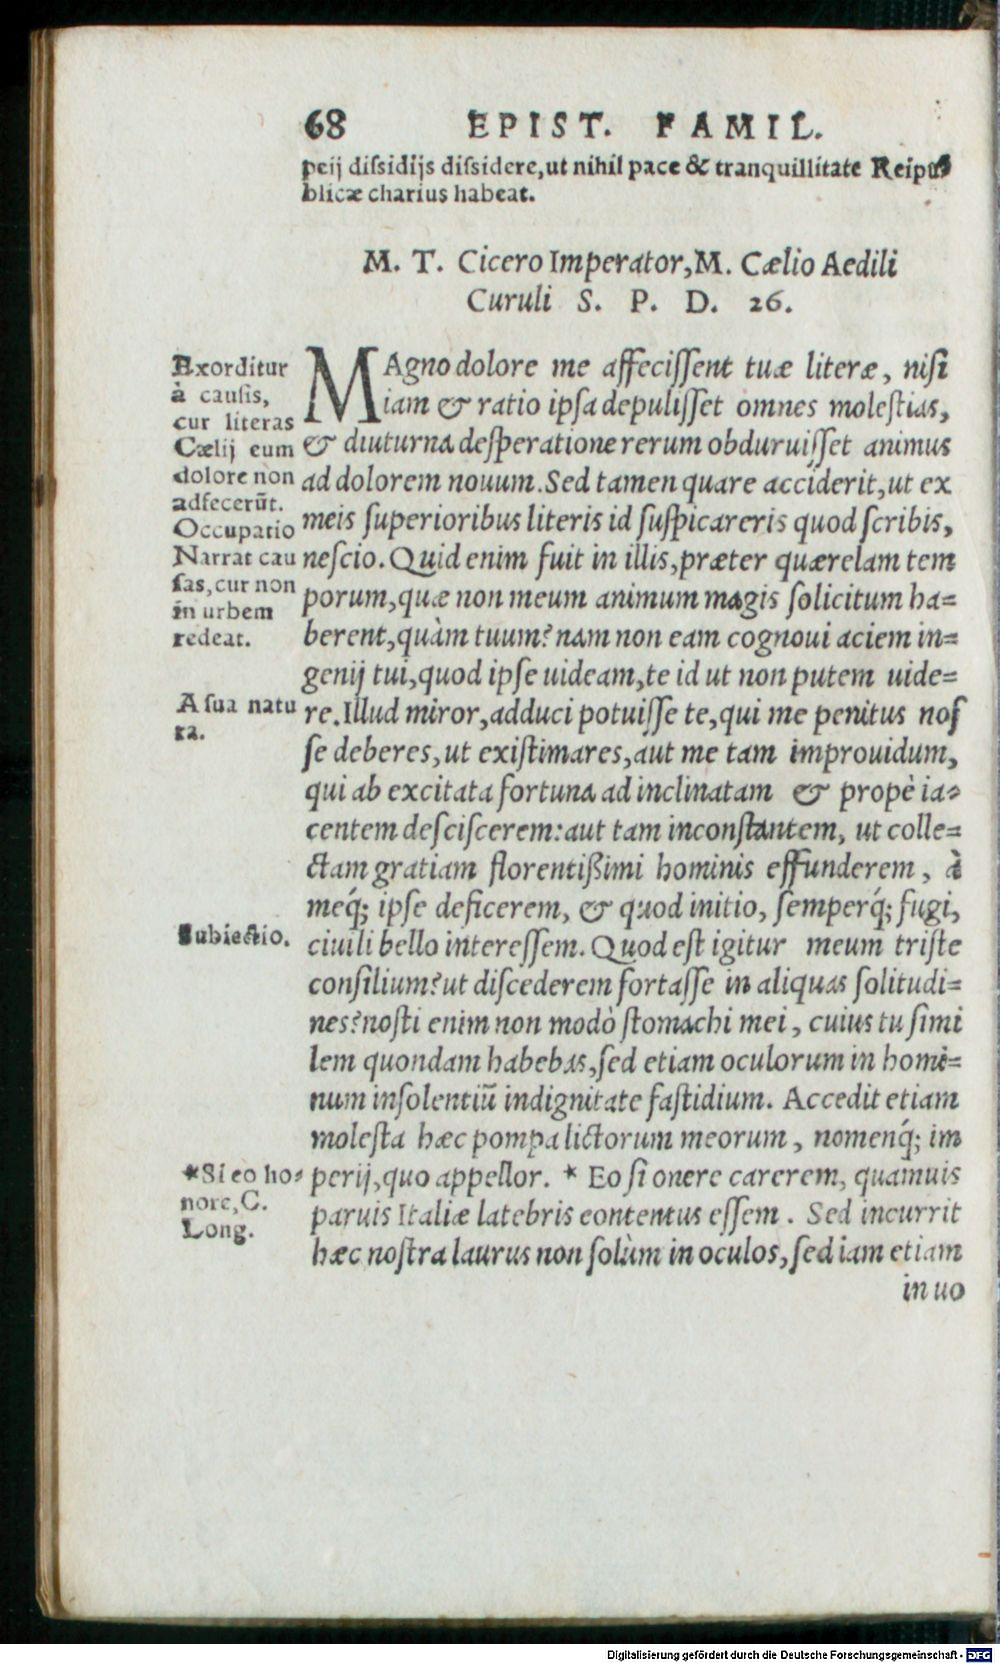 68 EPIST. FAMIL.
peij dissidijs dissidere, ut nihil pace & tranquillitate Reipu=
blicæ charius habeat.
M. T. Cicero Imperator, M. Cælio Aedili
Curuli S. P. D. 26.
MAgno dolore me affecissent tuæ literæ, nisi
iam & ratio ipsa depulisset omnes molestias,
& diuturna desperatione rerum obduruisset animus
ad dolorem nouum. Sed tamen quare acciderit, ut ex
meis superioribus literis id suspicareris quod scribis,
nescio. Quid enim fuit in illis, præter quærelam tem
porum, quæ non meum animum magis solicitum ha=
berent, quàm tuum? nam non eam cognoui aciem in=
genij tui, quod ipse uideam, te id ut non putem uide=
re. Illud miror, adduci potuisse te, qui me penitus nos
se deberes, ut existimares, aut me tam improuidum,
qui ab excitata fortuna ad inclinatam & propè ia=
centem desciscerem: aut tam inconstantem, ut colle=
ctam gratiam florentißimi hominis effunderem, à
meq́; ipse deficerem, & quod initio, semperq́; fugi,
ciuili bello interessem. Quod est igitur meum triste
consilium? ut discederem fortasse in aliquas solitudi=
nes? nosti enim non modò stomachi mei, cuius tu simi
lem quondam habebas, sed etiam oculorum in homi=
num insolentiũ indignitate fastidium. Accedit etiam
molesta hæc pompa lictorum meorum, nomenq́; im
perij, quo appellor. * Eo si onere carerem, quamuis
paruis Italiæ latebris contentus essem. Sed incurrit
hæc nostra laurus non solùm in oculos, sed iam etiam
in uo
Exorditur
à causis,
cur literas
Cælij eum
dolore non
adfecerũt.
Occupatio
Narrat cau
sas, cur non
in urbem
redeat.
A sua natu
ra.
Subiectio.
*Si eo ho=
nore, C.
Long.
Digitalisierung gefördert durch die Deutsche Forschungsgemeinschaft - DFG